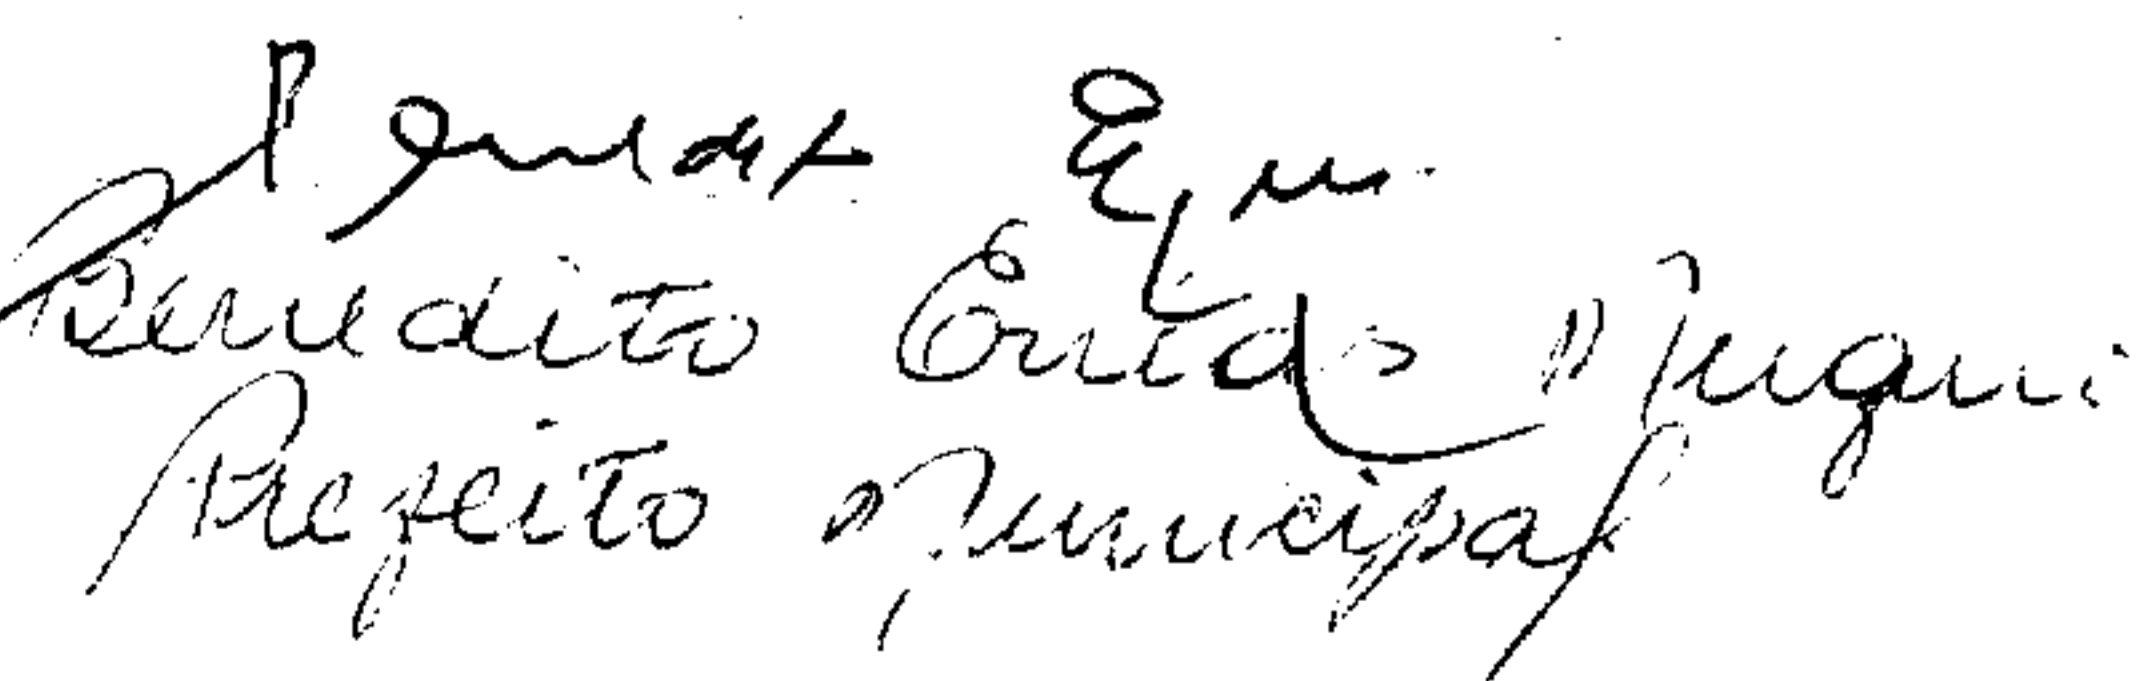 Benedito Enéas Muqui
Prefeito Municipal